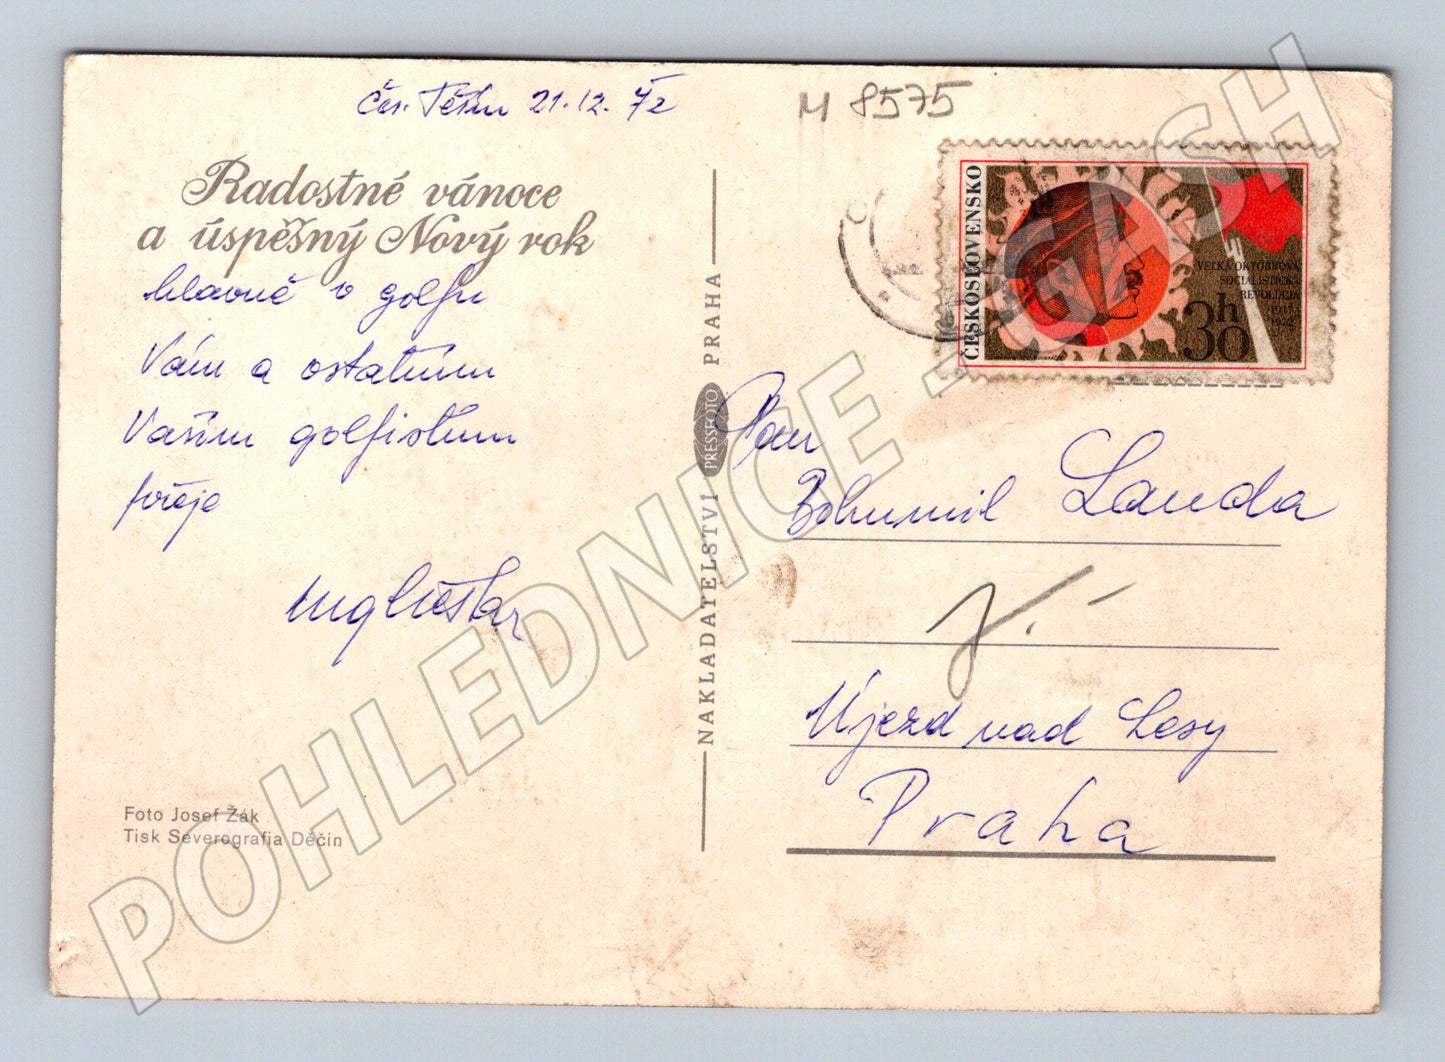 Čes. Těšín 21.12.72
M 8575
Radostné vánoce
a úspěšný Nový rok
hlavně v golfu
Vám a ostatním
Vašim golfistům
přeje
ČESKOSLOVENSKO
VEĽKÁ OKTÓBROVÁ
SOCIALISTICKÁ
REVOLÚCIA
1917
1972
30h
NAKLADATELSTVÍ PRESSFOTO PRAHA
Pan
Bohumil Landa
Újezd nad Lesy
Praha
Foto Josef Žák
Tisk Severografia Děčín
POHLEDNICE - GESH